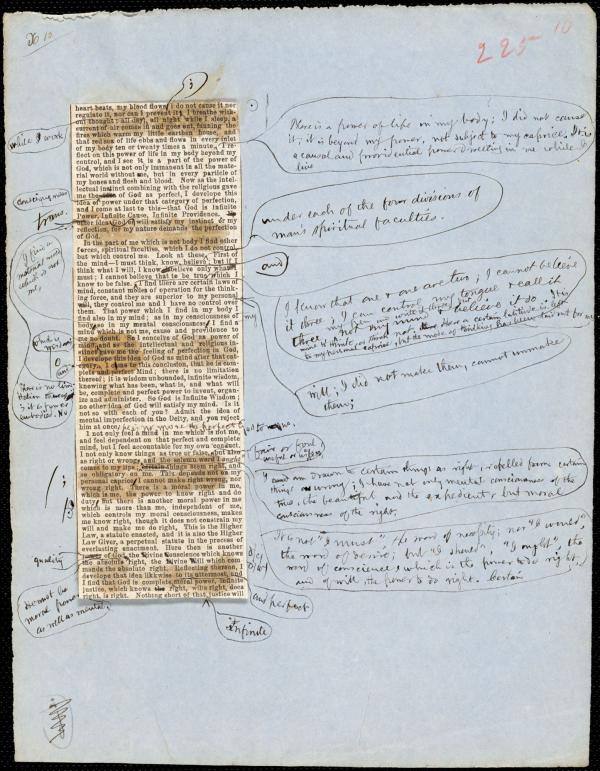 26 10
225 10
;
heart beats, my blood flows, i do not cause it nor
regulate it, nor can I prevent it; I breathe with-
out thought; all day, all night while I sleep, a
current of air comes in and goes out, fanning the
fires which warm my little earthen house, and
that red sea of life ebbs and flows in every inlet
of my body ten or twenty times a minute. I re-
flect on this power of life in my body beyond my
control, and I see it is a part of the power of
God, which is not only immanent in all the mate-
rial world without me, but in every particle of
my bones and flesh and blood. Now as the intel-
lectual instinct combining with the religious gave
me the idea of God as perfect, I develope this
idea of power under that category of perfection,
and I come at last to this—that God is Infinite
Power, Infinite Cause, Infinite Providence. No
other idea of God will satisfy my instinct or my
reflection, for my nature demands the perfection
of God.
In this part of me which is not body I find other
forces, spiritual faculties, which I do not control
but which control me. Look at these. First of
the mind—I must think, know, believe; but if I
think what I will, I know believe only what
must; I cannot believe that to be true which I
know to be false. I find there are certain laws of
mind, constant modes of operation for the think-
ing force, and they are superior to my personal
will, they control me and I have no control over
them. That power which I find in my body I
find also in my mind; as in my consciousness of
body so in my mental consciousness I find a
mind which is not me, cause and providence to
me no doubt. So I conceive of God as power of
mind, and as the intellectual and religious in-
stinct gave me the feeling of perfection in God,
I develope this idea of God as mind after that cat-
egory. I come to this conclusion, that he is com-
plete and perfect Mind; there is no limitation
thereof; it is wisdom unbounded, infinite wisdom,
knowing what has been, what is, and what will
be, complete and perfect power to invent, organ-
ize and administer. So God is Infinite Wisdom;
no other idea of God will satisfy my mind. Is it
not so with each of you? Admit the idea of
mental imperfection in the Deity, and you reject
him at once; he is no more the perfect God to me.
I not only feel a mind in me which is not me,
and feel dependent on that perfect and complete
mind, but I feel accountable for my own conduct.
I not only know things as true or false, but also
as right or wrong; and the solemn word I ought
comes to my lips; certain things seem right, and
so obligatory on me. This depends not on my
personal caprice; I cannot make right wrong, nor
wrong right. There is a moral power in me,
which is me, the power to know right and do
duty; but there is another moral power in me
which is more than me, independent of me,
which controls my moral consciousness, makes
me know right, though it does not constrain my
will and make me do right. This is the Higher
Law, a statute enacted, and it is also the Higher
Law Giver, a perpetual statute in the process of
everlasting enactment. Here then is another
of God, the Divine Conscience which knows
the absolute right, the Divine Will which com-
mands the absolute right. Reflecting thereon,
develope that idea likewise to its uttermost, and
I find that God is complete moral power, infinite
justice, which knows the right, wills right, does
right, is right. Nothing short of that justice will
while I work,
consciousness
trans.
I find a
material mind
which is not
me,
O
and
quality
He must be
moral power
as well as mental.
There is a power of life on my body; I did not cause
it; it is beyond my power, not subject to my caprice. It is
a causal and providential power dwelling in me while I
live
under each of the four divisions of
man's spiritual faculties.
and
my
I know that one & one are two; I cannot believe
it three; I can control my tongue & call it
three, not my mind & believe it so. It is
will; I did not make them, cannot unmake
them;
fair or foul,
useful or useless,
I am drawn to certain things as right, repelled from certain
things as wrong; I have not only mental consciousness of the
true, the beautiful, and the expedient but moral
consciousness of the right,
It is not "I must" the word of necessity; not "I would",
the word of desire; but "I should", "I ought", the
word of conscience, which is the power to do right,
and of will the power to do right. Certain
and perfect
Infinite